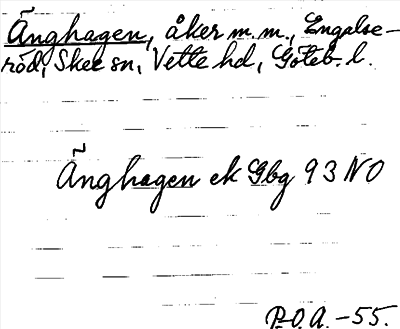 Änghagen, åker m.m., Engalse-
röd, Skee sn, Vette hd, Göteb. l.
Änghagen ek Gbg 93 NO
P.O.A. -55.